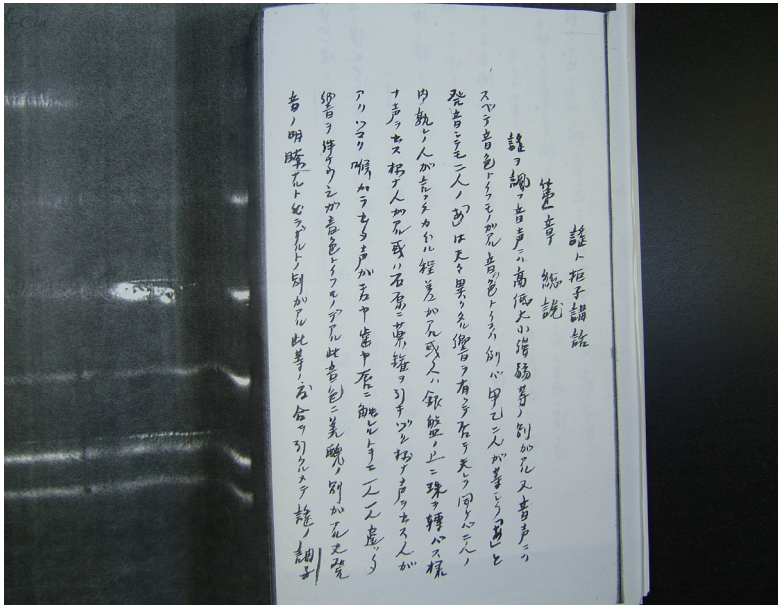 謡ト拒子講話
第一章 総説
謡ヲ調フ音声ニハ高低大小強弱等ノ別ガアル又音声ニハ
スベテ音色トイフモノガアル音色トイフハ例ヘバ甲乙二人ガ等シク「あ」と
発音シテモ二人ノ「あ」は夫々異リタル響ヲ有シテ居テ
内ノ人ガ程差ガアル或人ハ銀盤ノ上ニ珠ヲ轉バス様
ナ声ヲ出ス様ナ人ガアル或ハ石原ニ薬鑵ヲ引キヅル様ナ声ヲ出ス人ガ
アリツマリ喉カラ出ル声ガ舌ヤ歯ヤ唇ニ触レルトキニ一人一人違ッタ
響ヲ音色トイフモノデアル此音色ニ美醜ノ別ガアル又発
音ノ明瞭ナルト然ラザルトノ別ガアル此等ノ度合ヲ引クルメテ謡ノ調子